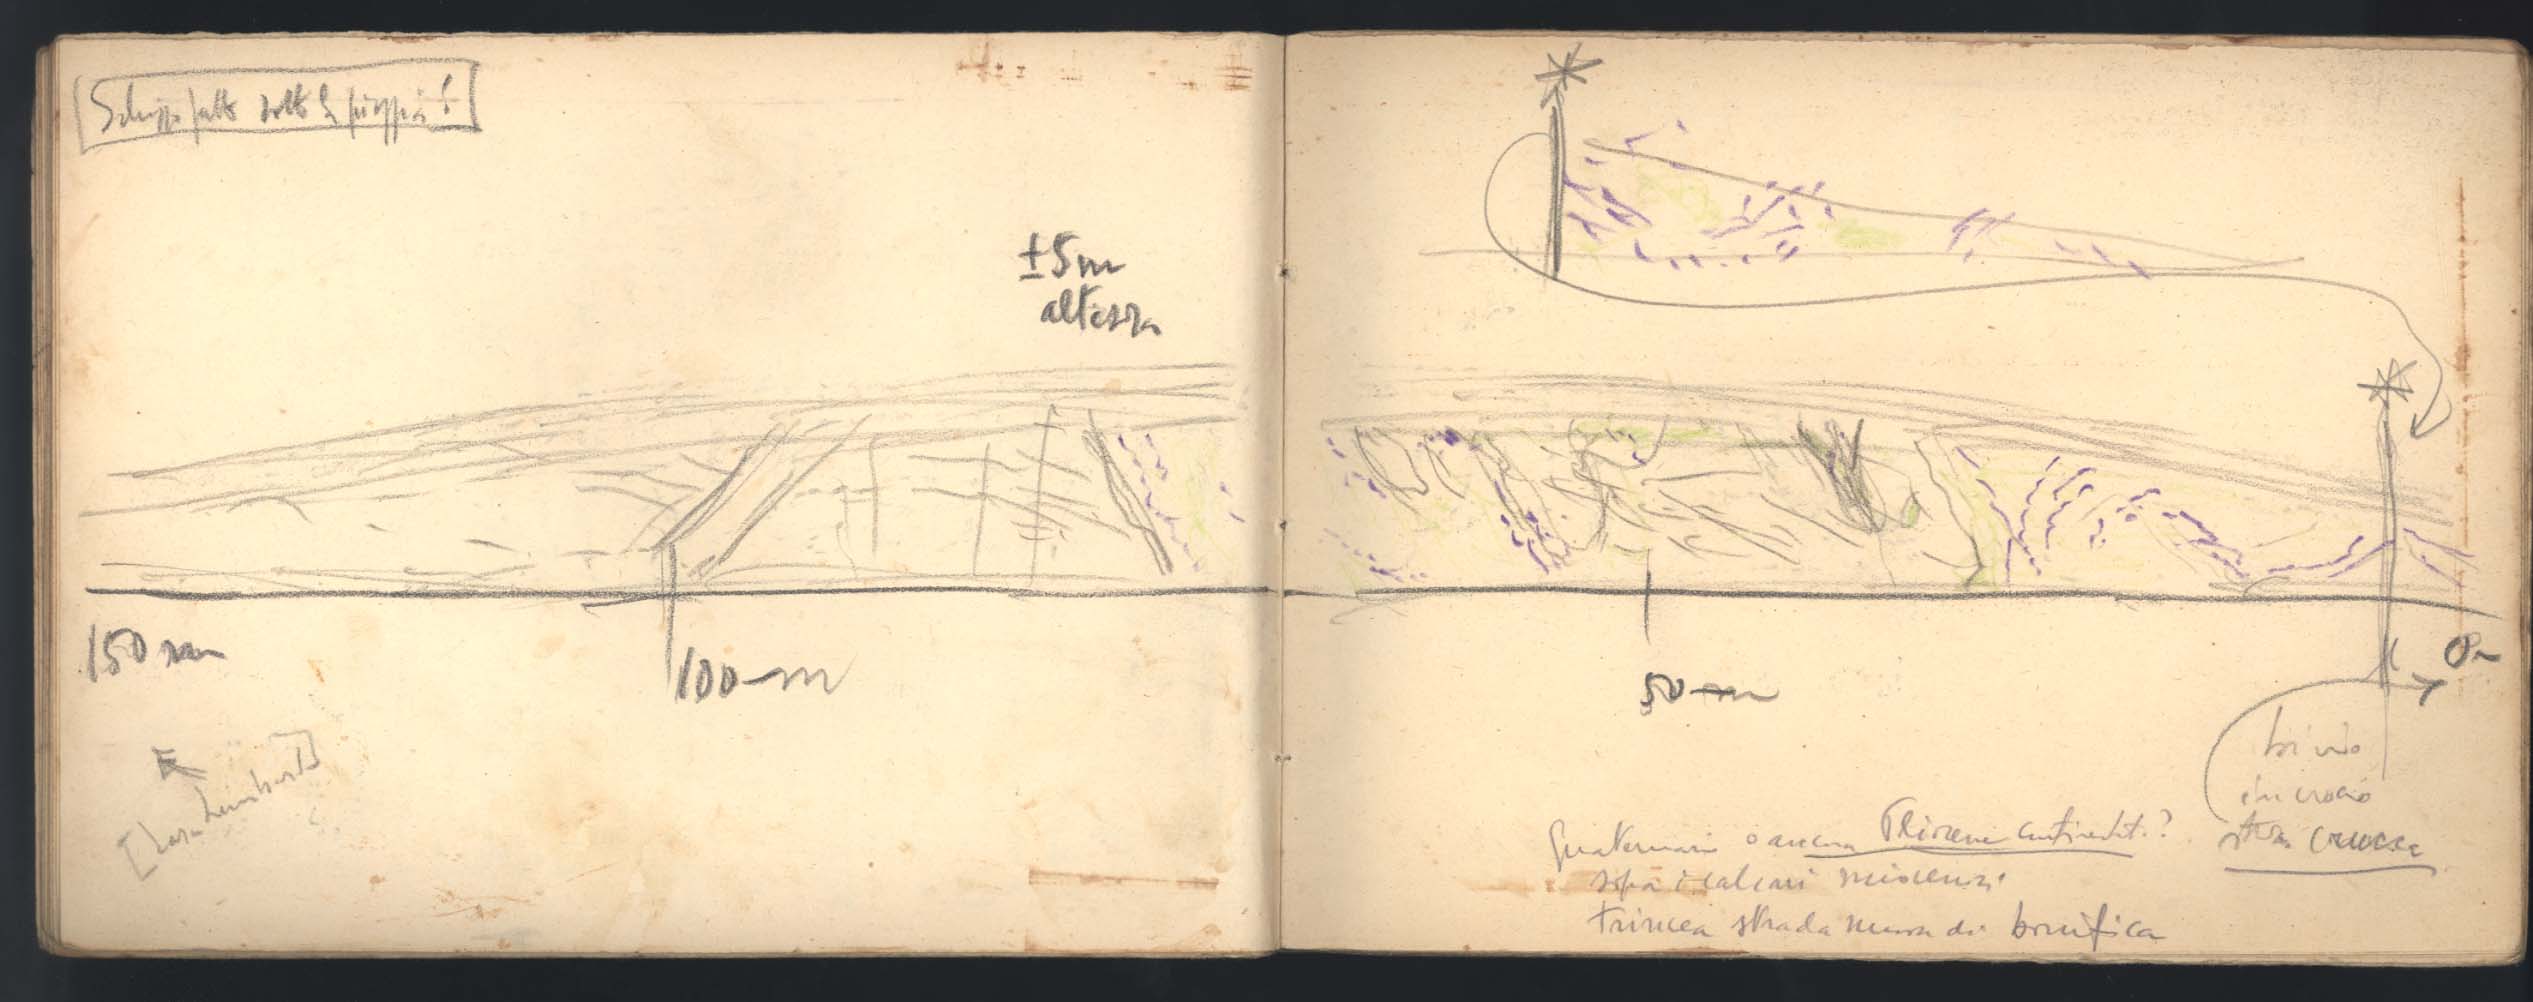 Schizzo fatto sotto la pioggia!
±5m
altezza
150 m
100 m
50 m
0 m
bivio
incrocio
Quaternario o ancora Pliocene continent.?
sopra i calcari miocenici
trincea strada nuova di bonifica